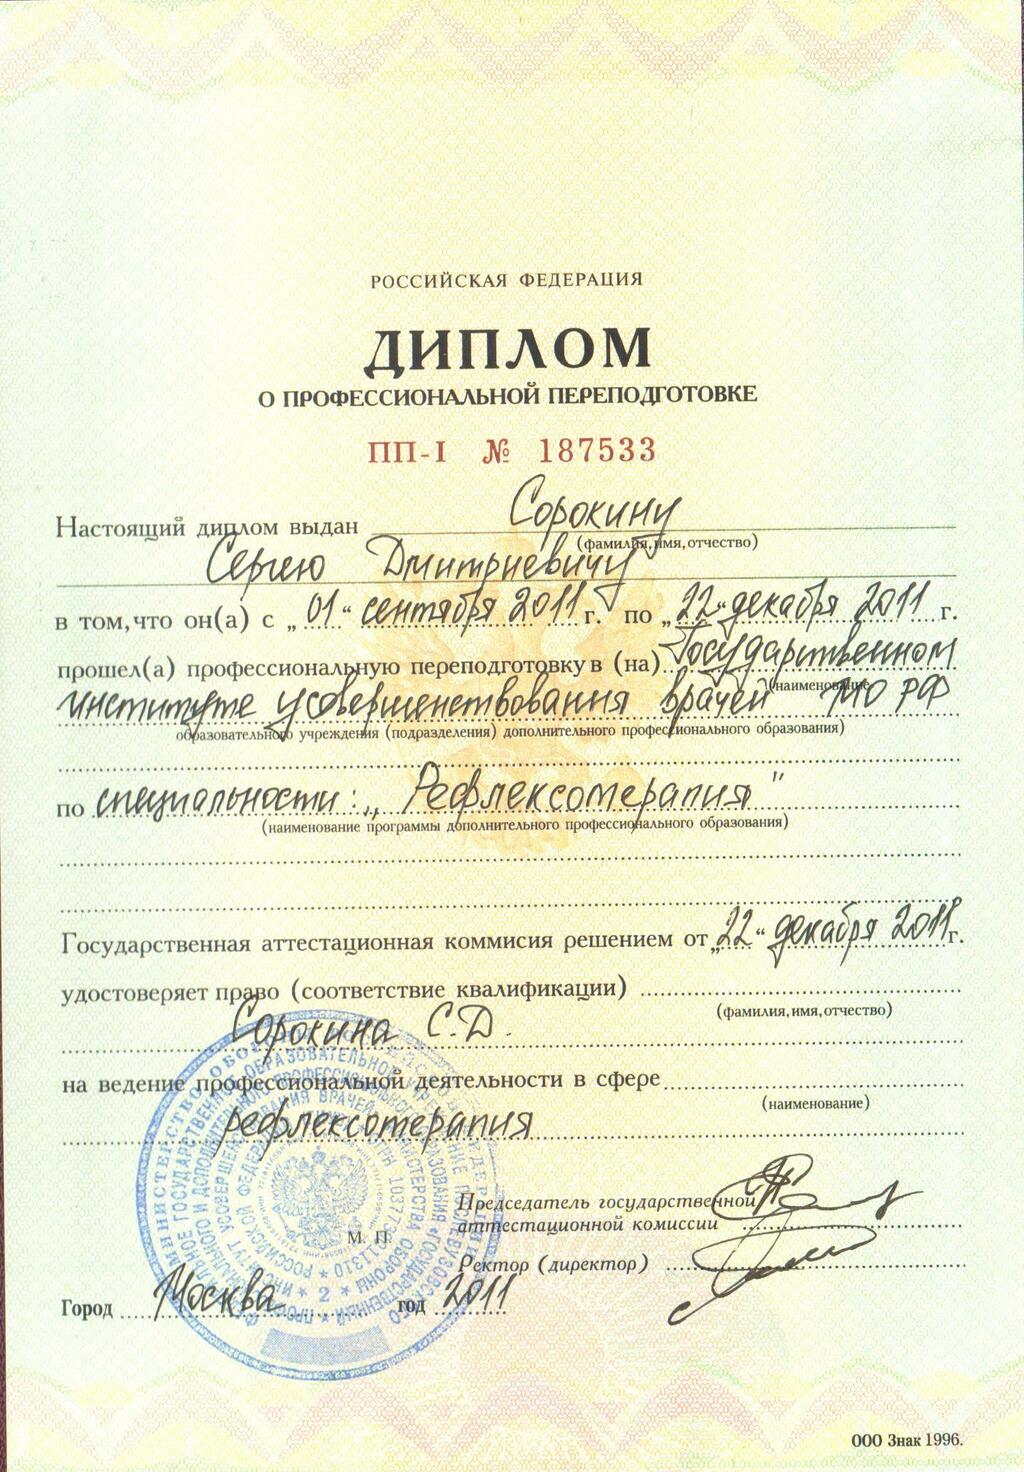 РОССИЙСКАЯ ФЕДЕРАЦИЯ
ДИПЛОМ
О ПРОФЕССИОНАЛЬНОЙ ПЕРЕПОДГОТОВКЕ
ПП-I № 187533
Настоящий диплом выдан Сорокину
(фамилия, имя, отчество)
Сергею Дмитриевичу
в том, что он(а) с „01“ сентября 2011 г. по „22“ декабря 2011 г.
прошел(а) профессиональную переподготовку в (на) Государственном
(наименование
институте усовершенствования врачей МО РФ
образовательного учреждения (подразделения) дополнительного профессионального образования)
по специальности: „Рефлексотерапия"
(наименование программы дополнительного профессионального образования)
Государственная аттестационная коммисия решением от „22“ декабря 2011 г.
удостоверяет право (соответствие квалификации)
(фамилия, имя, отчество)
Сорокина С.Д.
на ведение профессиональной деятельности в сфере
(наименование)
рефлексотерапия
Председатель государственной
аттестационной комиссии
М. П.
Ректор (директор)
Город Москва год 2011
ООО Знак 1996.